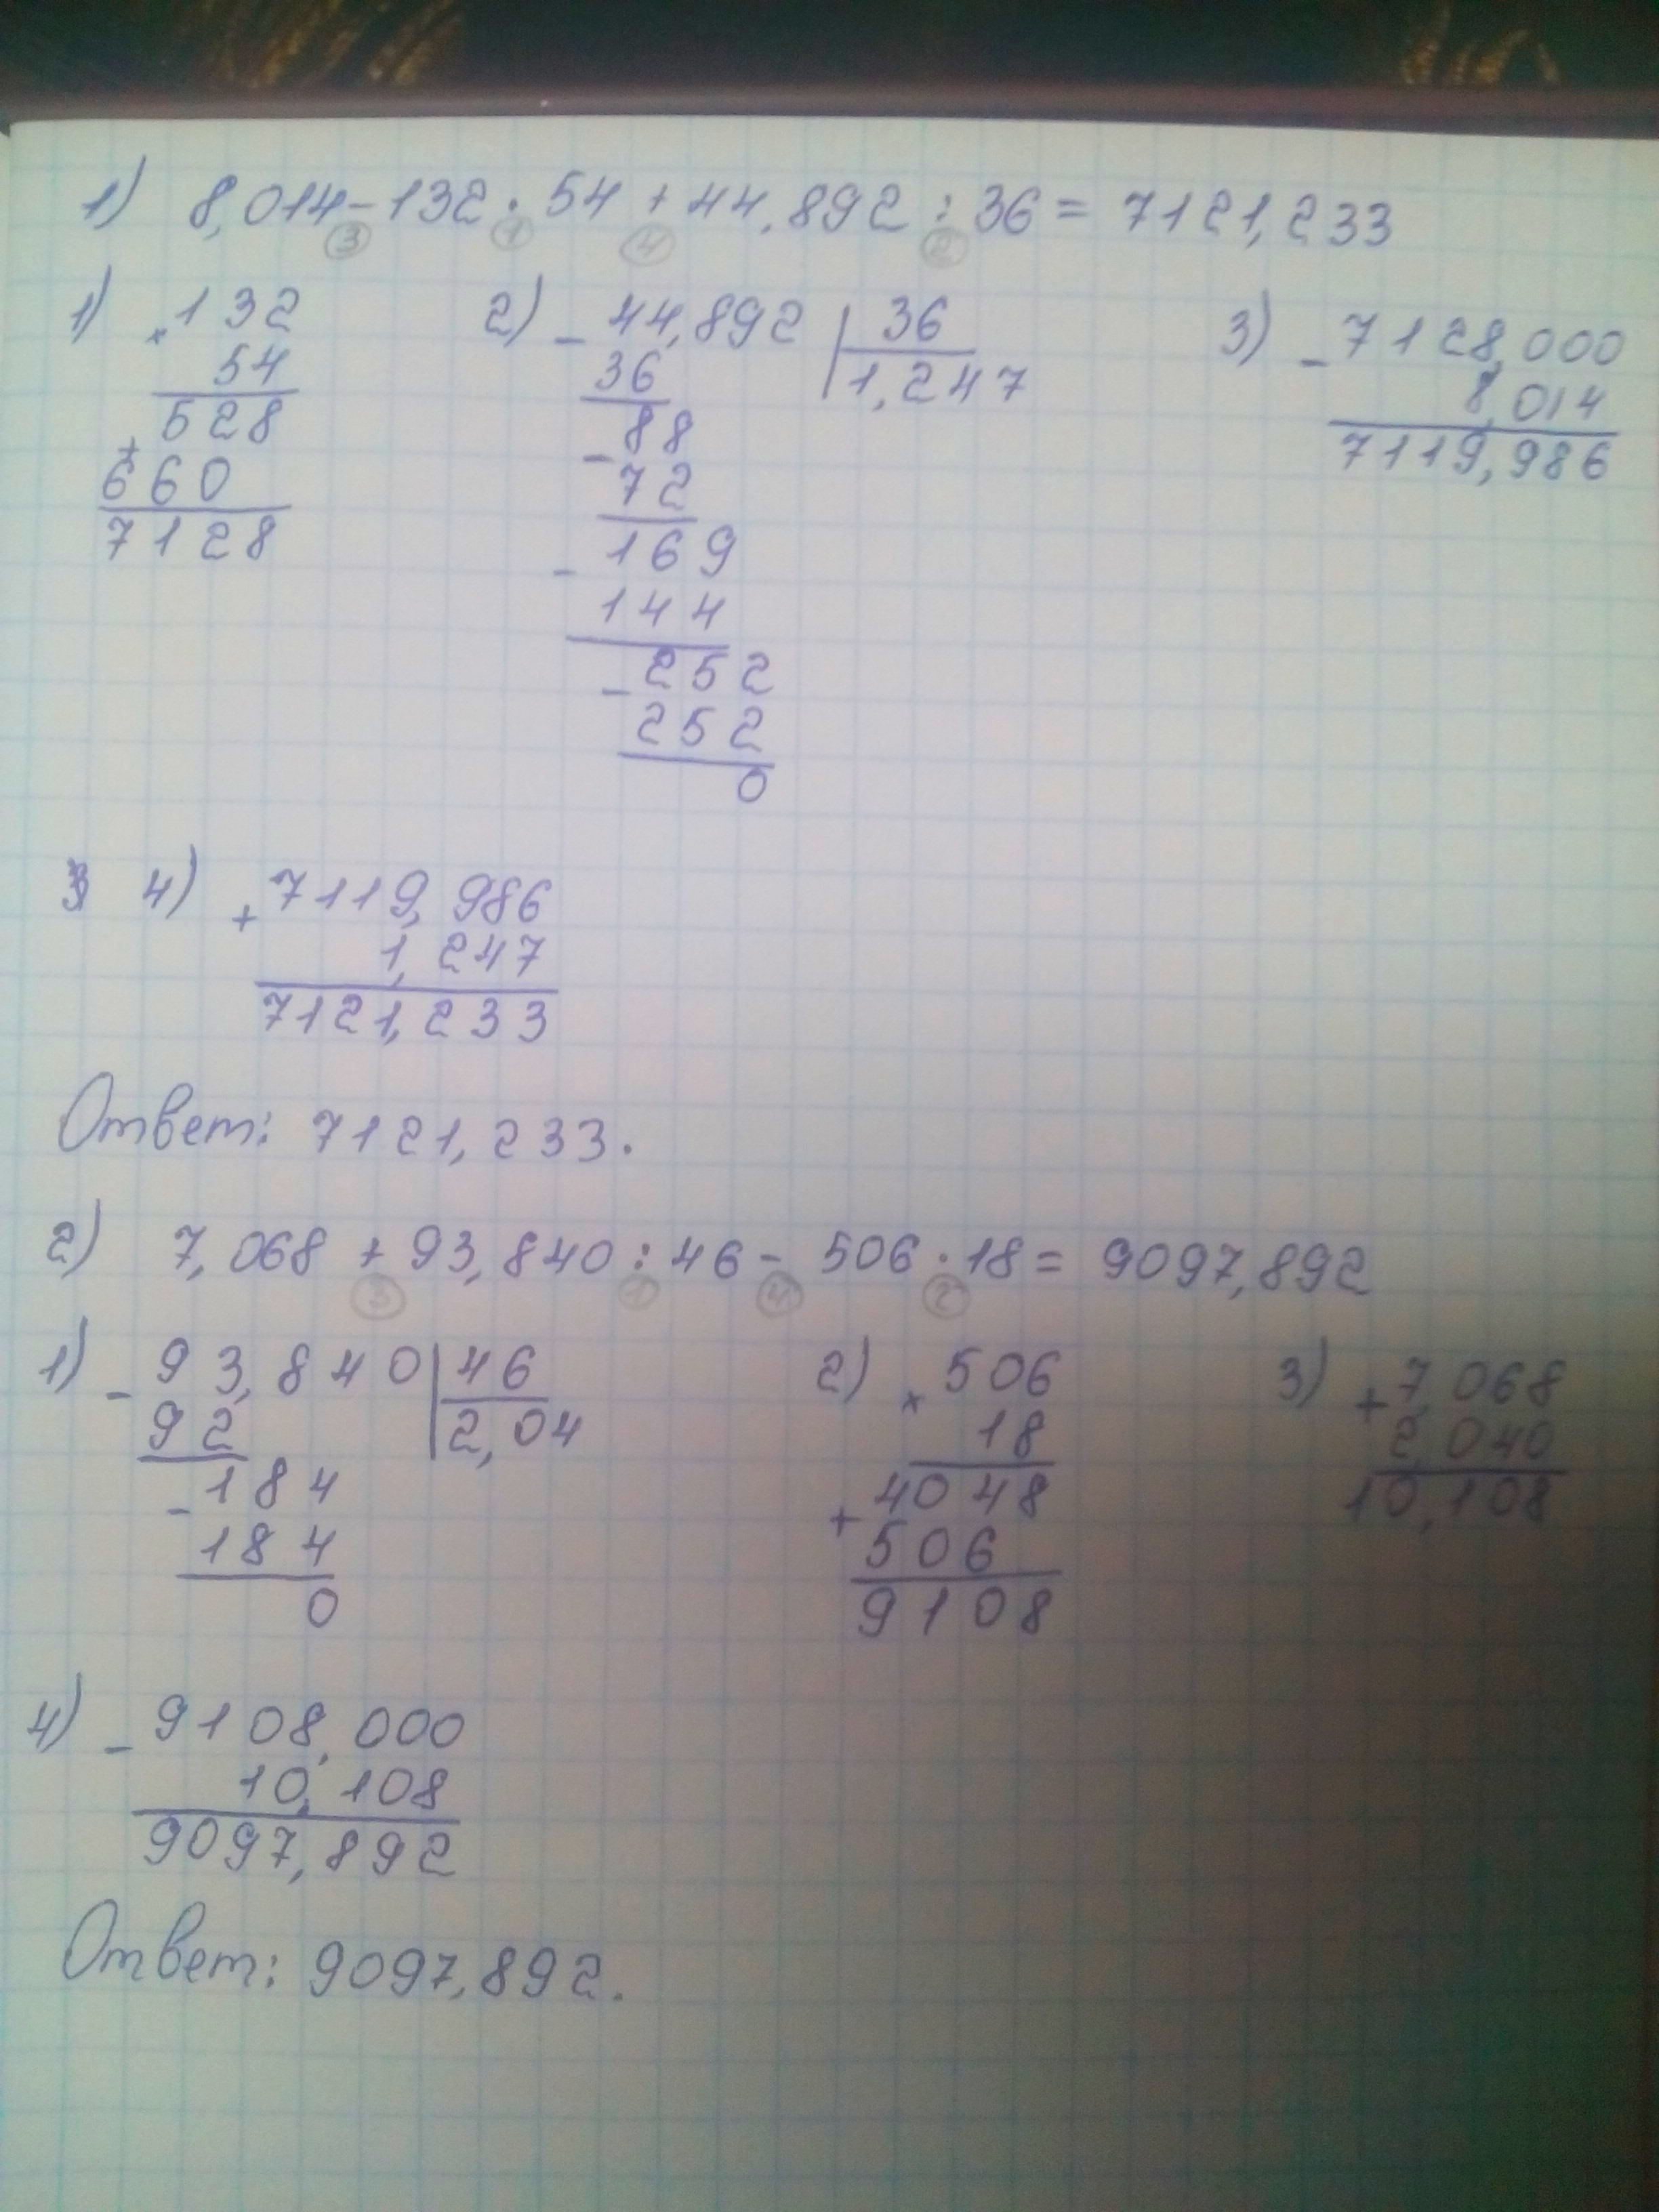 1) 8,014-132·54+44,892:36=7121,233
3 1 4 2
1) ×132
54
528
+
660
7128
2) -44,892 |36
36 1,247
-88
72
-169
144
-252
252
0
3) -7128,000
8,014
7119,986
4) +7119,986
1,247
7121,233
Ответ: 7121,233.
2) 7,068+93,840:46-506·18=9097,892
3 1 4 2
1) -93,840|46
92 2,04
-184
184
0
2) ×506
18
+4048
506
9108
3) +7,068
2,040
10,108
4) -9108,000
10,108
9097,892
Ответ: 9097,892.